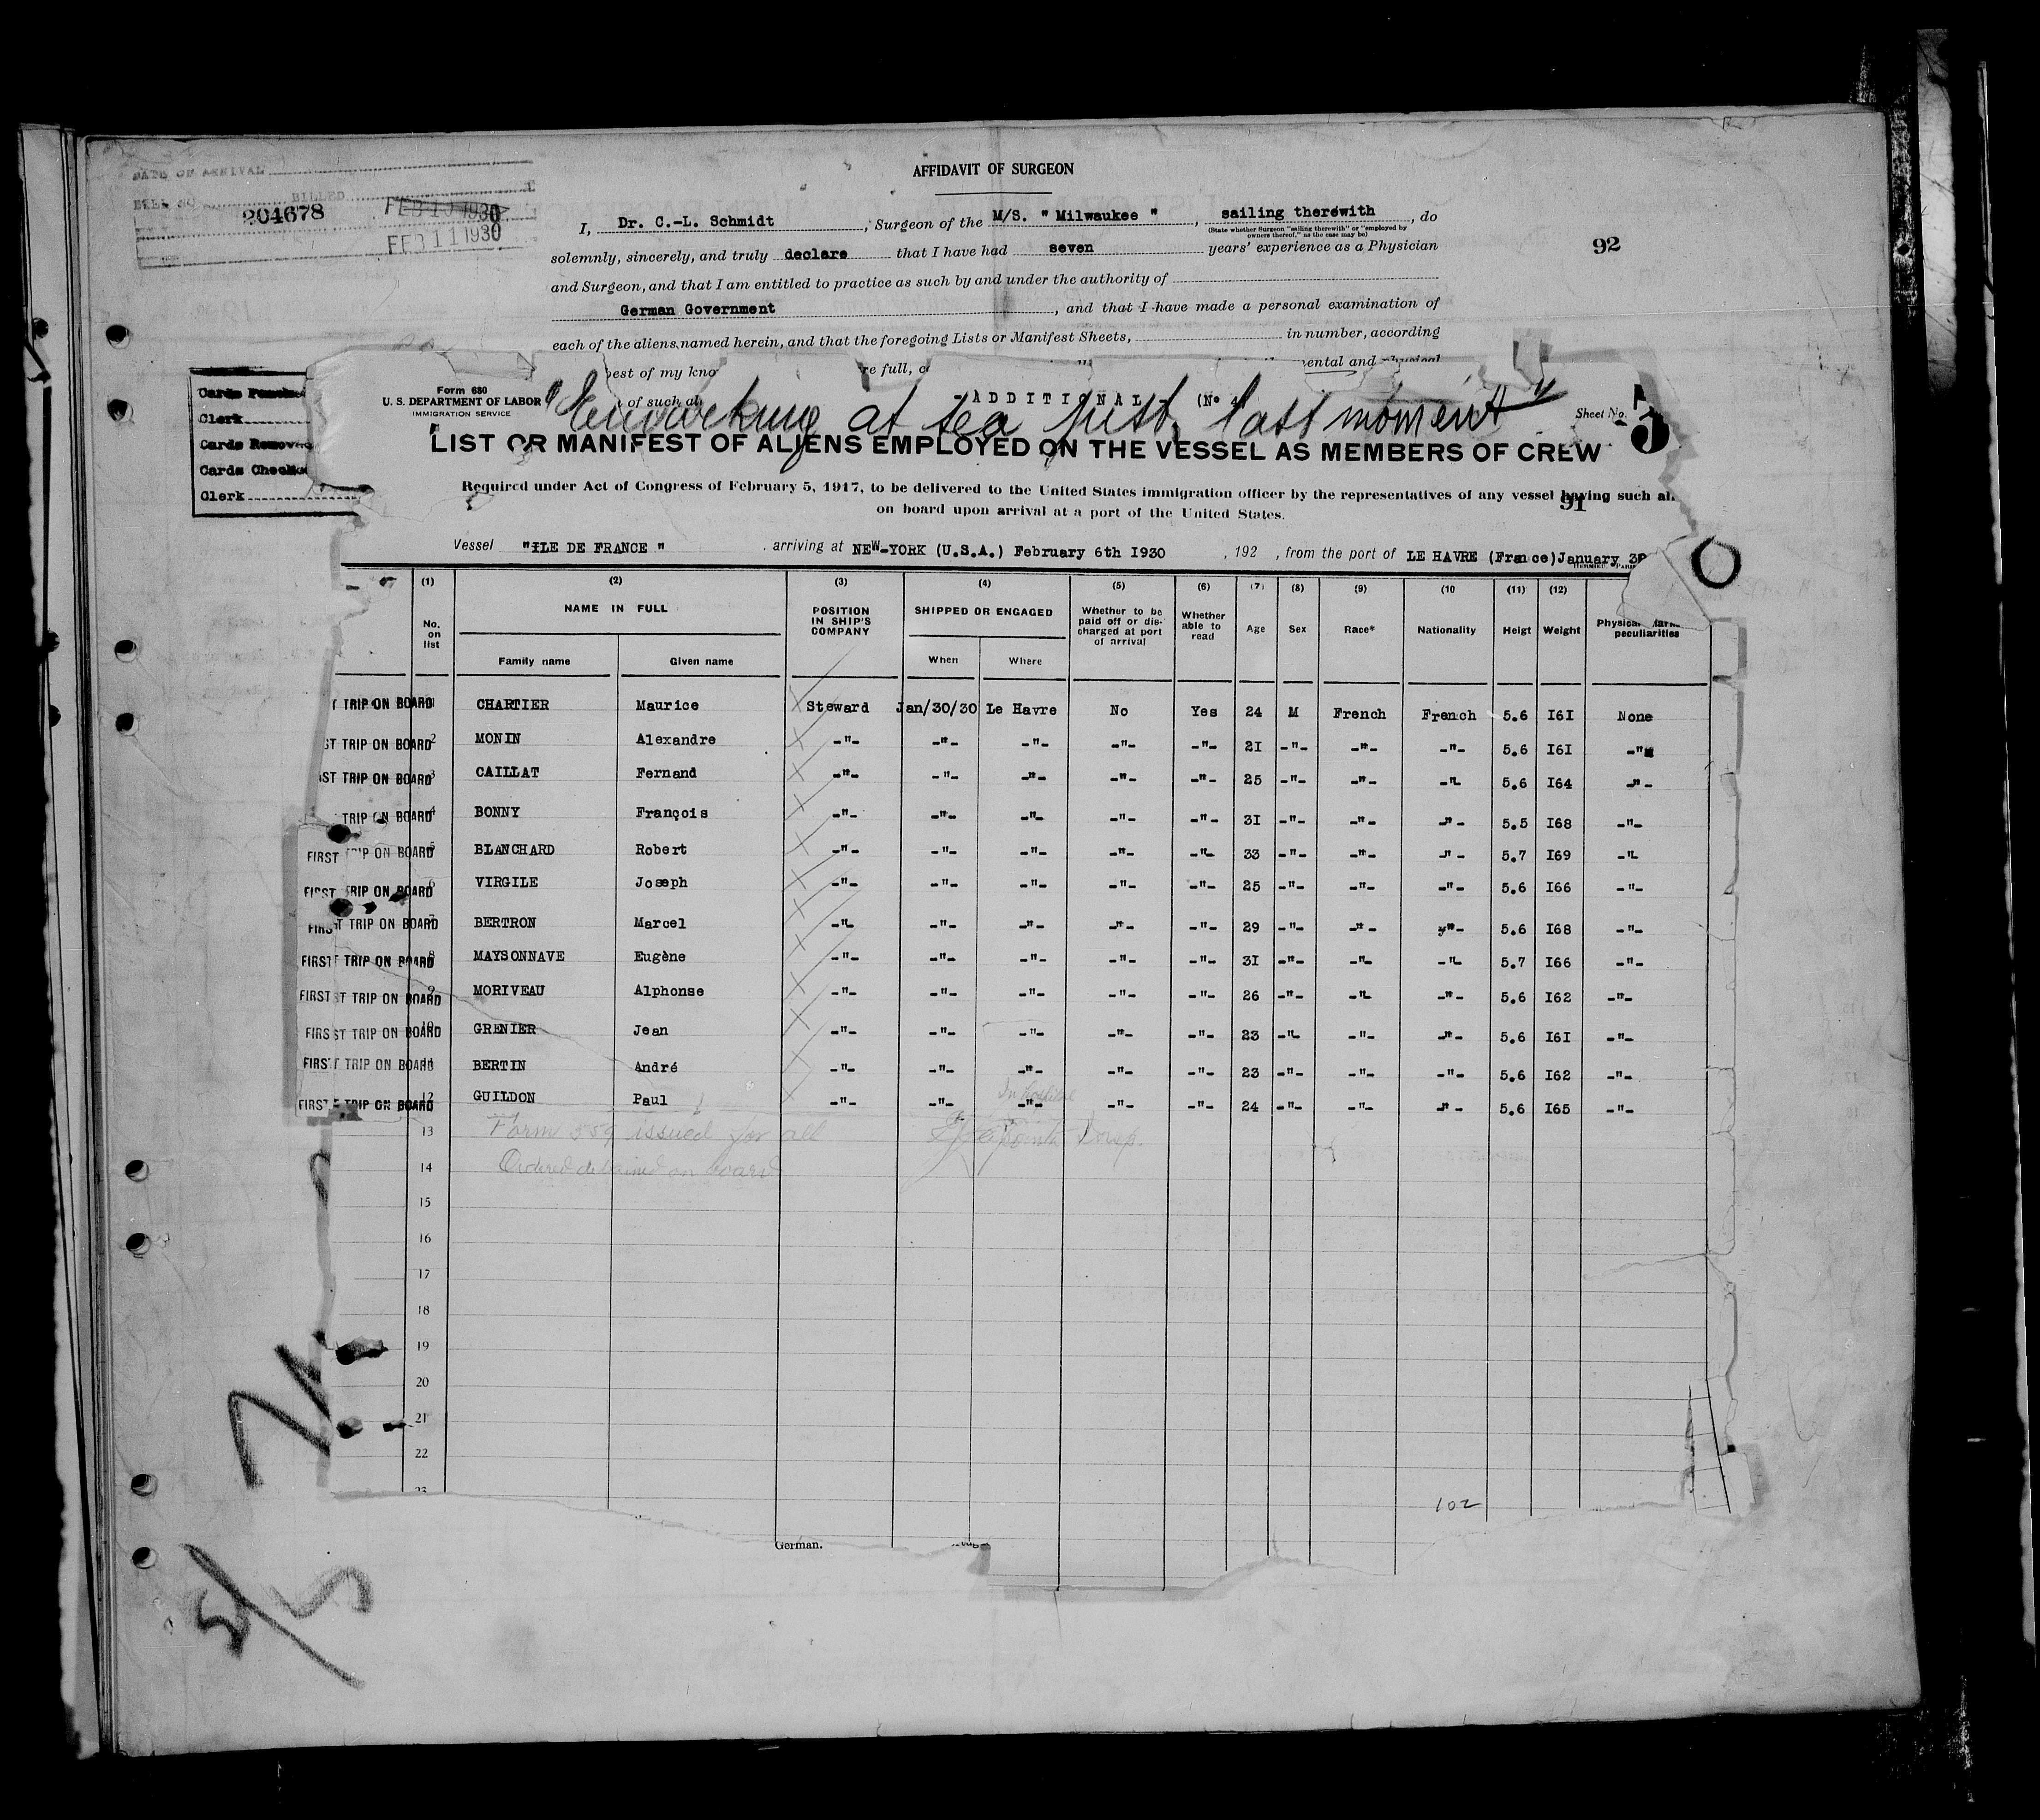 AFFIDAVIT OF SURGEON
DATE OF ARRIVAL
BILLED
204678 FEB 10 1930
FEB 11 1930
I, Dr. C.-L. Schmidt, Surgeon of the M/S. "Milwaukee", sailing therewith, do
(State whether Surgeon "sailing therewith" or "employed by
owners thereof," as the case may be)
92
solemnly, sincerely, and truly declare that I have had seven years' experience as a Physician
and Surgeon, and that I am entitled to practice as such by and under the authority of
German Government, and that I have made a personal examination of
each of the aliens named herein, and that the foregoing Lists or Manifest Sheets, in number, according
best of my kno re full, mental and physical
of such al
Cards Punched
Clerk
Cards Removed
Cards Checked
Clerk
Form 680
U. S. DEPARTMENT OF LABOR
IMMIGRATION SERVICE
ADDITIONAL (No 4
at sea just last moment"
Sheet No. 5
LIST OR MANIFEST OF ALIENS EMPLOYED ON THE VESSEL AS MEMBERS OF CREW
Required under Act of Congress of February 5, 1917, to be delivered to the United States immigration officer by the representatives of any vessel having such al
on board upon arrival at a port of the United States.
91
Vessel "ILE DE FRANCE" . arriving at NEW-YORK (U.S.A.) February 6th I930 , 192 , from the port of LE HAVRE (France) January
(1) (2) (3) (4) (5) (6) (7) (8) (9) (10 (11) (12)
No. on list NAME IN FULL POSITION IN SHIP'S COMPANY SHIPPED OR ENGAGED Whether to be paid off or discharged at port of arrival Whether able to read Age Sex Race* Nationality Heigt Weight Physical peculiarities
Family name Given name When Where
T TRIP ON BOARD 1 CHARTIER Maurice Steward Jan/30/30 Le Havre No Yes 24 M French French 5.6 I6I None
ST TRIP ON BOARD 2 MONIN Alexandre -"- -"- -"- -"- -"- 2I -"- -"- -"- 5.6 I6I -"-
ST TRIP ON BOARD 3 CAILLAT Fernand -"- -"- -"- -"- -"- 25 -"- -"- -"- 5.6 I64 -"-
TRIP ON BOARD 4 BONNY François -"- -"- -"- -"- -"- 3I -"- -"- -"- 5.5 I68 -"-
FIRST TRIP ON BOARD 5 BLANCHARD Robert -"- -"- -"- -"- -"- 33 -"- -"- -"- 5.7 I69 -"-
FIRST TRIP ON BOARD 6 VIRGILE Joseph -"- -"- -"- -"- -"- 25 -"- -"- -"- 5.6 I66 -"-
FIRST TRIP ON BOARD 7 BERTRON Marcel -"- -"- -"- -"- -"- 29 -"- -"- -"- 5.6 I68 -"-
FIRST TRIP ON BOARD 8 MAYSONNAVE Eugène -"- -"- -"- -"- -"- 3I -"- -"- -"- 5.7 I66 -"-
FIRST TRIP ON BOARD 9 MORIVEAU Alphonse -"- -"- -"- -"- -"- 26 -"- -"- -"- 5.6 I62 -"-
FIRST TRIP ON BOARD 10 GRENIER Jean -"- -"- -"- -"- -"- 23 -"- -"- -"- 5.6 I6I -"-
FIRST TRIP ON BOARD 11 BERTIN André -"- -"- -"- -"- -"- 23 -"- -"- -"- 5.6 I62 -"-
FIRST TRIP ON BOARD 12 GUILDON Paul -"- -"- -"- -"- -"- 24 -"- -"- -"- 5.6 I65 -"-
13 Form 559 issued for all Insp.
14 Ordered detained on board
15
16
17
18
19
20
21
22
23
102
German.